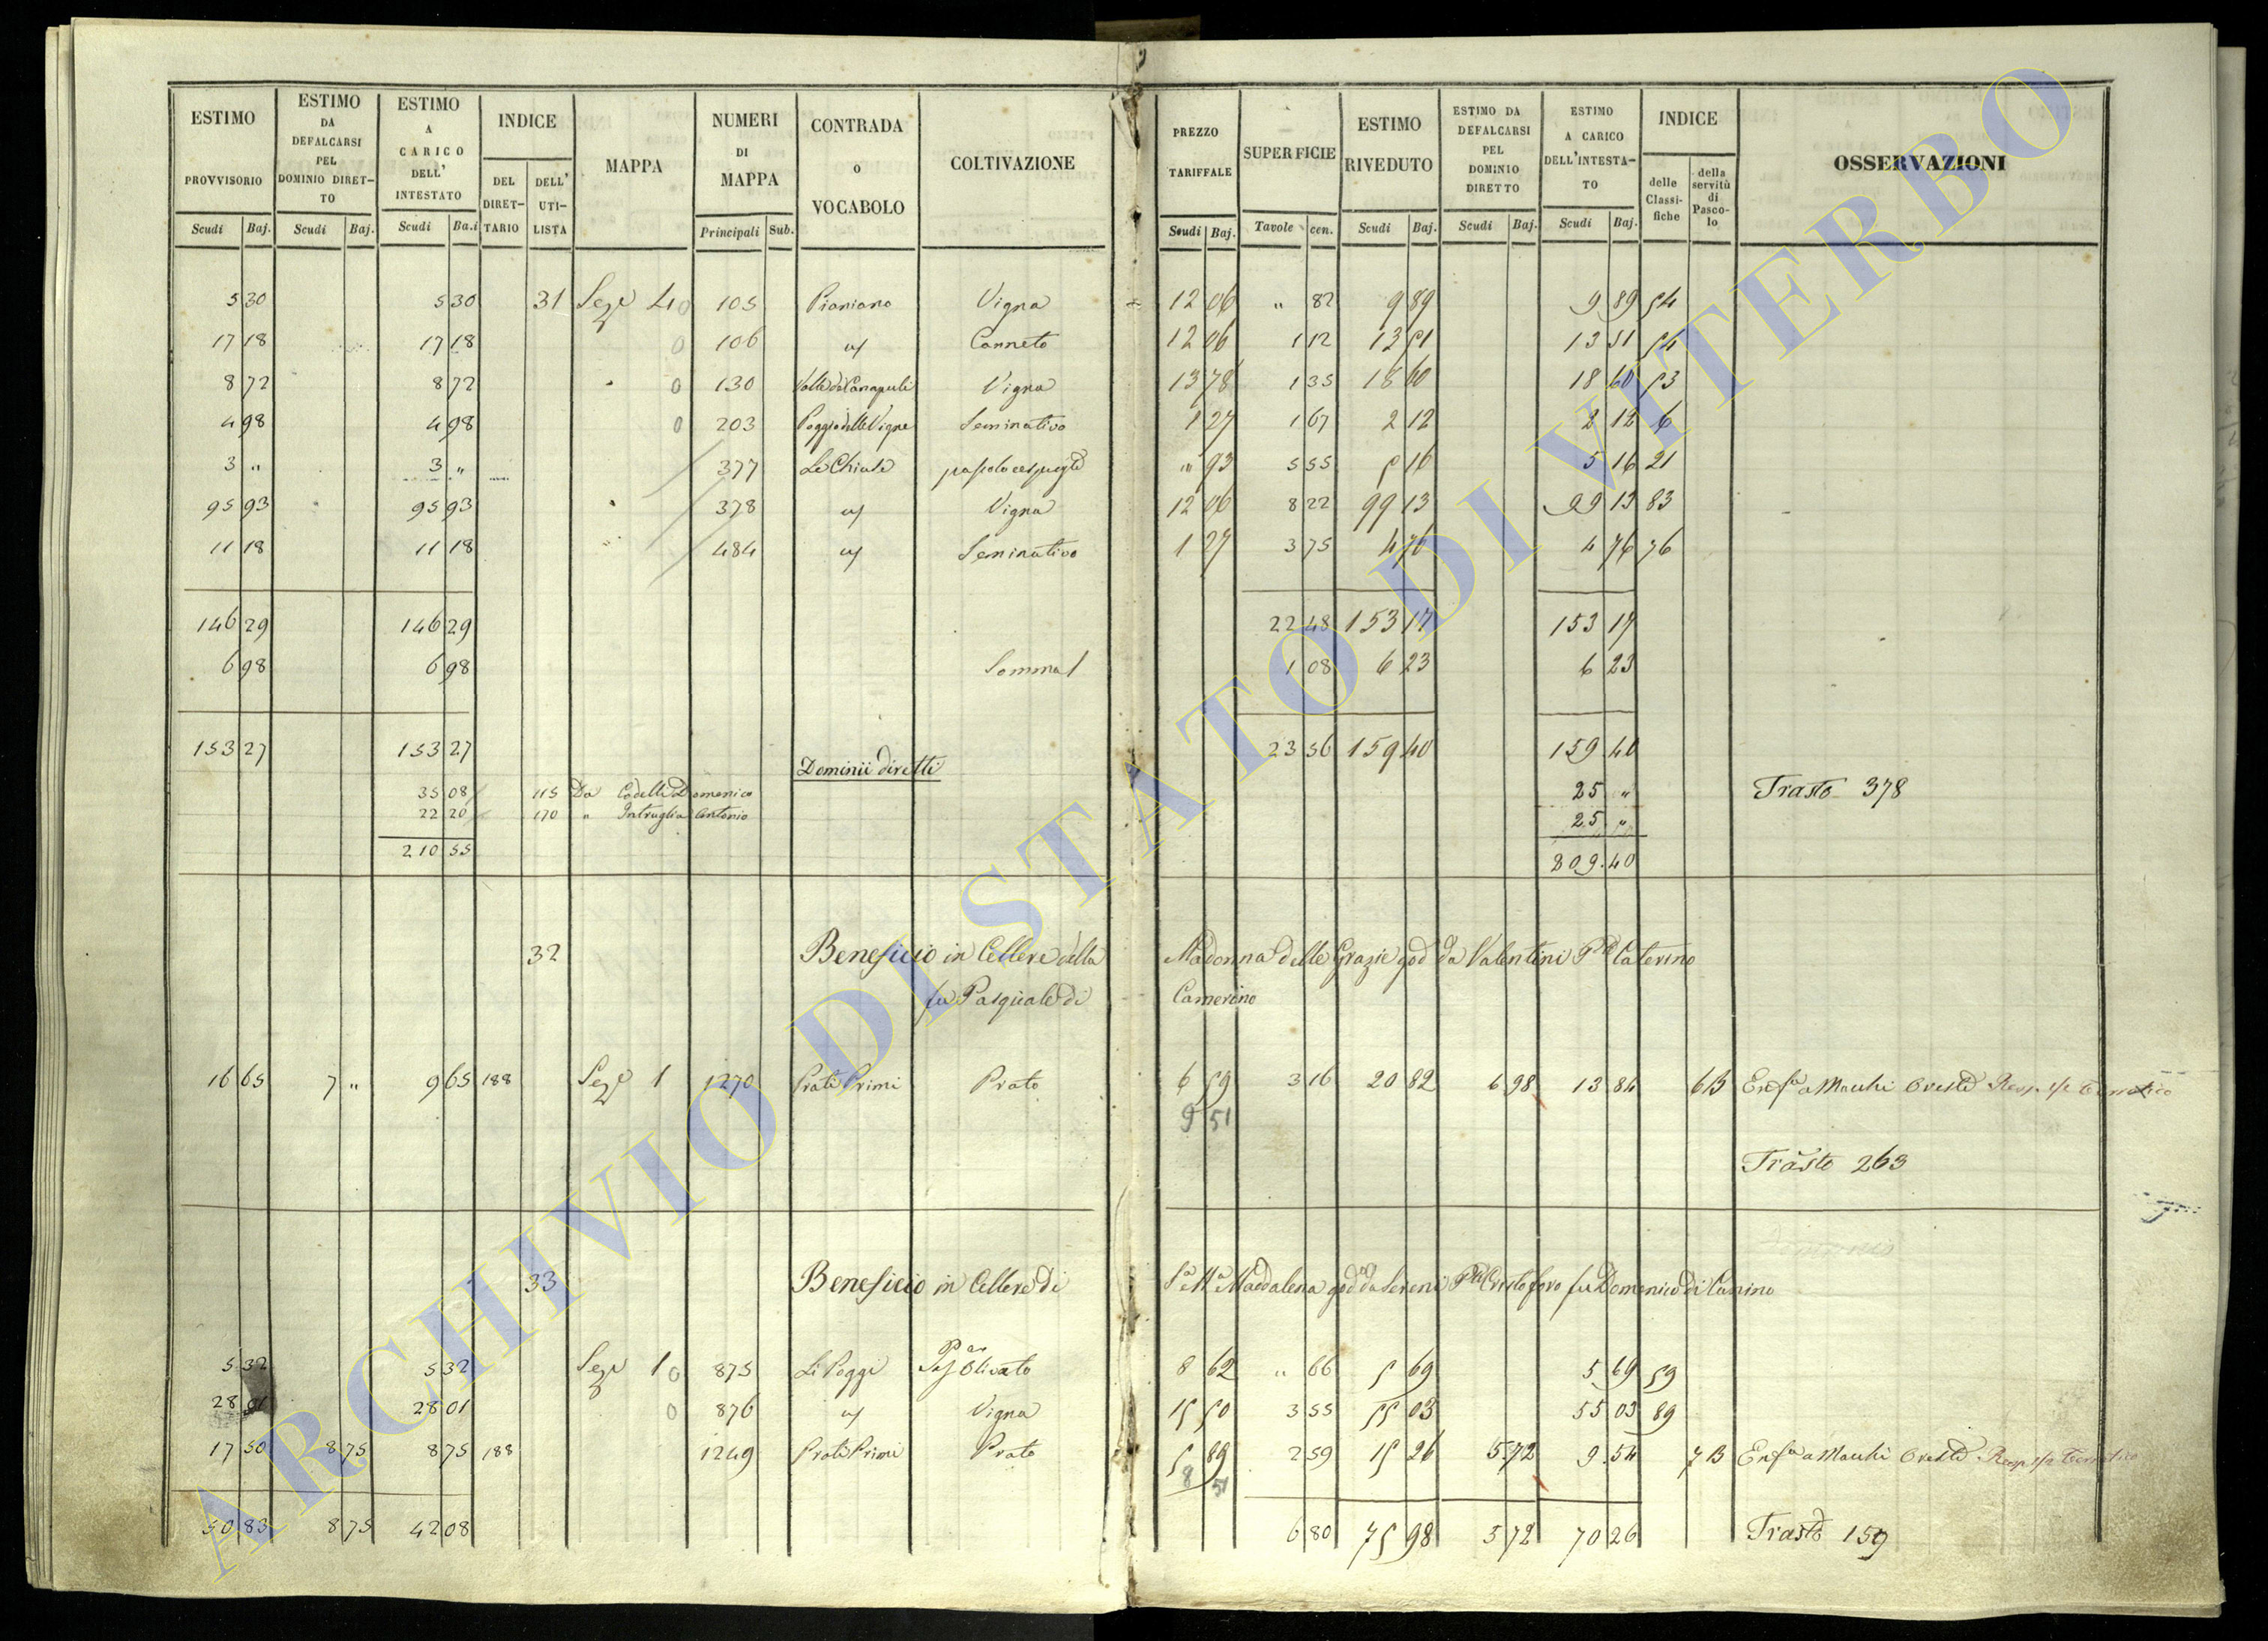 ESTIMO PROVVISORIO | ESTIMO DA DEFALCARSI PEL DOMINIO DIRET-TO | ESTIMO A CARICO DELL' INTESTATO | INDICE | MAPPA | NUMERI DI MAPPA | CONTRADA o VOCABOLO | COLTIVAZIONE | PREZZO TARIFFALE | SUPERFICIE | ESTIMO RIVEDUTO | ESTIMO DA DEFALCARSI PEL DOMINIO DIRETTO | ESTIMO A CARICO DELL'INTESTA-TO | INDICE | OSSERVAZIONI
DEL DIRET-TARIO | DELL' UTI-LISTA | delle Classi-fiche | della servitù di Pasco-lo
Scudi | Baj. | Scudi | Baj. | Scudi | Ba.i | Principali | Sub. | Scudi | Baj. | Tavole | cen. | Scudi | Baj. | Scudi | Baj. | Scudi | Baj.
5 30 | 5 30 | 31 | Sez.e 4 0 | 105 | Pianiano | Vigna | 12 06 | " 82 | 9 89 | 9 89 | 54
17 18 | 17 18 | 0 | 106 | Canneto | 12 06 | 1 12 | 13 51 | 13 51 | 54
8 72 | 8 72 | 0 | 130 | Vigna | 13 78 | 1 35 | 18 60 | 18 60 | 53
4 98 | 4 98 | 0 | 203 | Poggio delle Vigne | Seminativo | 1 27 | 1 67 | 2 12 | 2 12 | 6
3 " | 3 " | 377 | Le Chiuse | " 93 | 5 55 | 5 16 | 5 16 | 21
95 93 | 95 93 | 378 | Vigna | 12 06 | 8 22 | 99 13 | 99 13 | 83
11 18 | 11 18 | 484 | Seminativo | 1 27 | 3 75 | 4 76 | 4 76 | 76
146 29 | 146 29 | 22 48 | 153 17 | 153 17
6 98 | 6 98 | Somma | 1 08 | 6 23 | 6 23
153 27 | 153 27 | 23 56 | 159 40 | 159 40
Dominii diretti
35 08 | 115 | Da Domenico | 25 " | Trasto 378
22 20 | 170 | " Intruglia Antonio | 25 "
210 55 | 809.40
32 | Beneficio in Cellere della Madonna delle Grazie god da Valentini Caterino
fu Pasquale di Camerino
16 65 | 7 " | 9 65 | 188 | Sez.e 1 | 1270 | Prati Primi | Prato | 6 59 | 3 16 | 20 82 | 6 98 | 13 84 | 6B | Enf.a a Macchi Oreste
9 51
Trasto 263
33 | Beneficio in Cellere di S.a M.a Maddalena god da Sereni Cristoforo fu Domenico di Canino
5 32 | 5 32 | Sez.e 1 0 | 875 | Li Poggi | Olivato | 8 62 | " 66 | 5 69 | 5 69 | 59
28 01 | 28 01 | 0 | 876 | Vigna | 15 50 | 3 55 | 55 03 | 55 03 | 89
17 50 | 8 75 | 8 75 | 188 | 1249 | Prati Primi | Prato | 5 89 | 2 59 | 15 26 | 5.72 | 9.54 | 7B | Enf.a a Macchi Oreste
8 51
50 83 | 8 75 | 42 08 | 6 80 | 75 98 | 5 72 | 70 26 | Trasto 159
ARCHIVIO DI STATO DI VITERBO